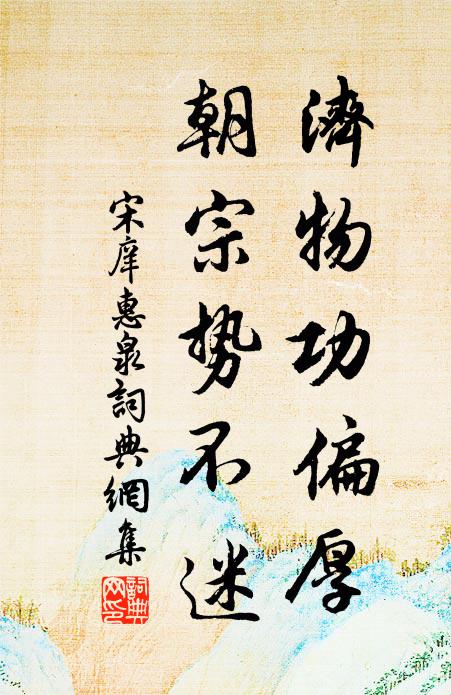 濟物功偏厚
朝宗势不迷
宋庠惠泉詞典網集
詞典
网印